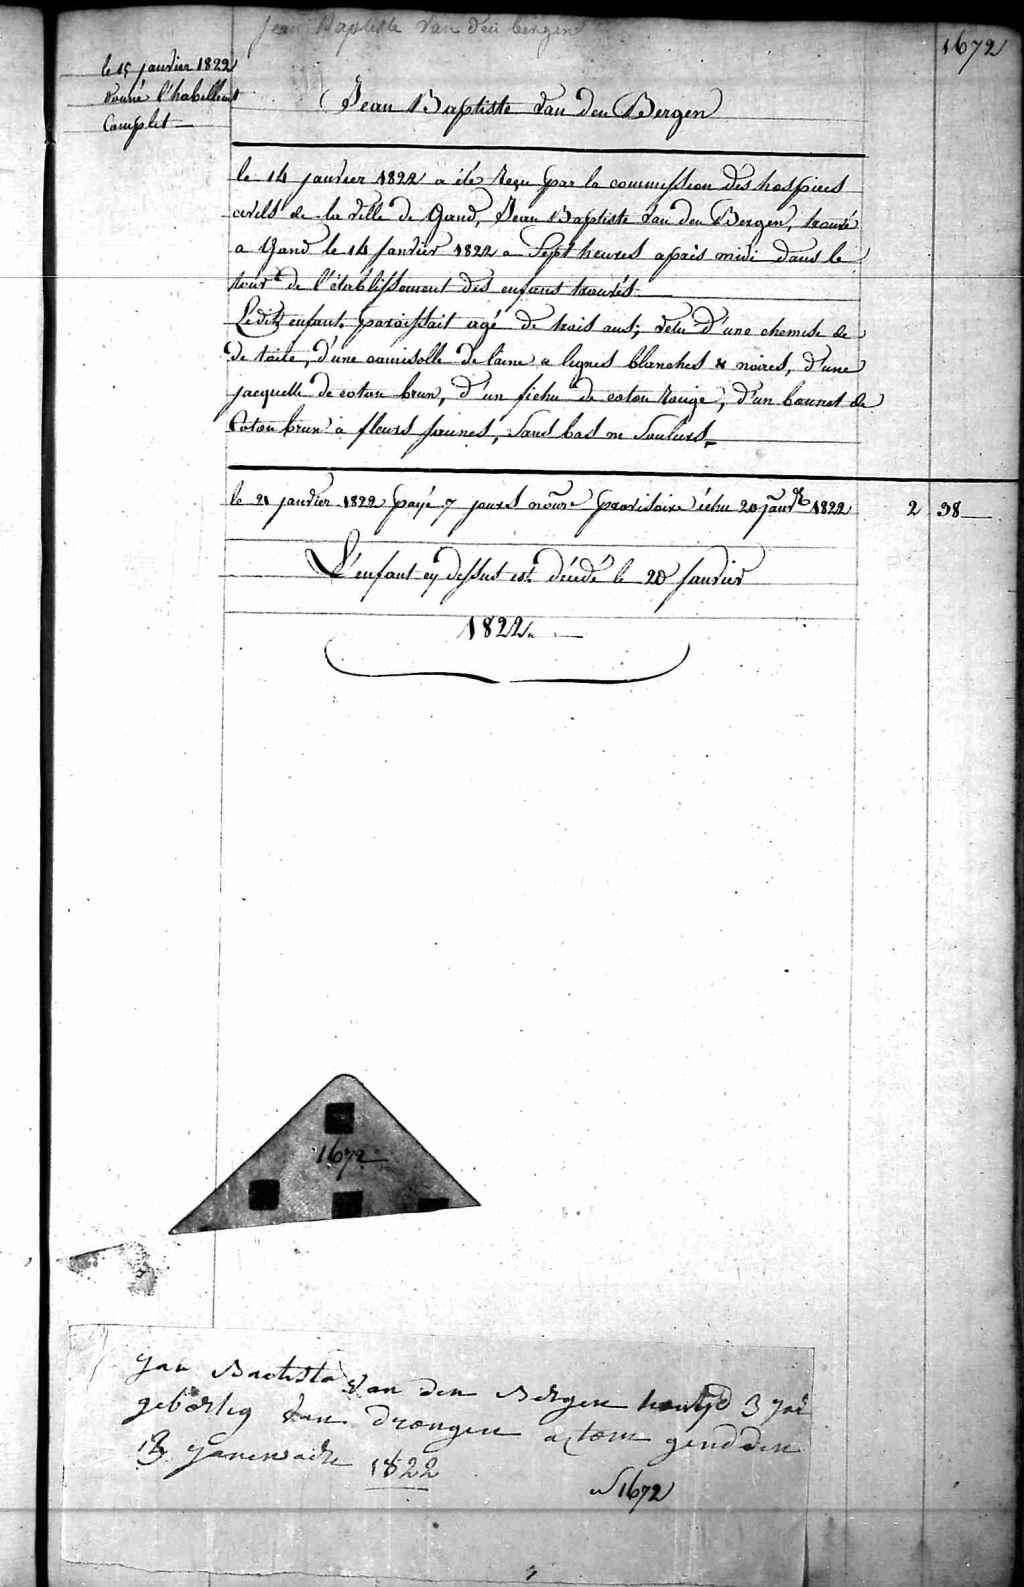 Jean Baptiste Van den bergen
1672
le 15 janvier 1822
donné l'habillem.t
Complet
Jean Baptiste Van den Bergen
le 14 janvier 1822 a été Reçu par la commission des hospices
civils de la ville de Gand, Jean Baptiste Van den Bergen, trouvé
a Gand le 14 Janvier 1822 a Sept heures après midi dans le
tour de l'établissement des enfans trouvés
Ledit enfant paroissait agé de trois ans; vetu d'une chemise de
de toile, d'une camisolle de laine a lignes blanches & noires, d'une
jacquelle de coton brun, d'un fichu de coton Rouge, d'un bonnet de
Coton brun à fleurs jaunes, Sans bas ni Souliers
le 21 janvier 1822 payé 7 jours nourre provisoire échu 20 janvr 1822 2 38
L'enfant cy dessus est décédé le 20 janvier
1822
1672
Jan Bactista Van den Bergen 3 Jar
geborteg Van drongen gend den
13 Janewade 1822
N 1672